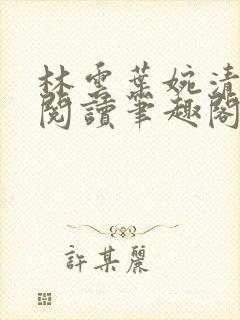 林雲葉婉清
閱讀筆趣閣
許某麗